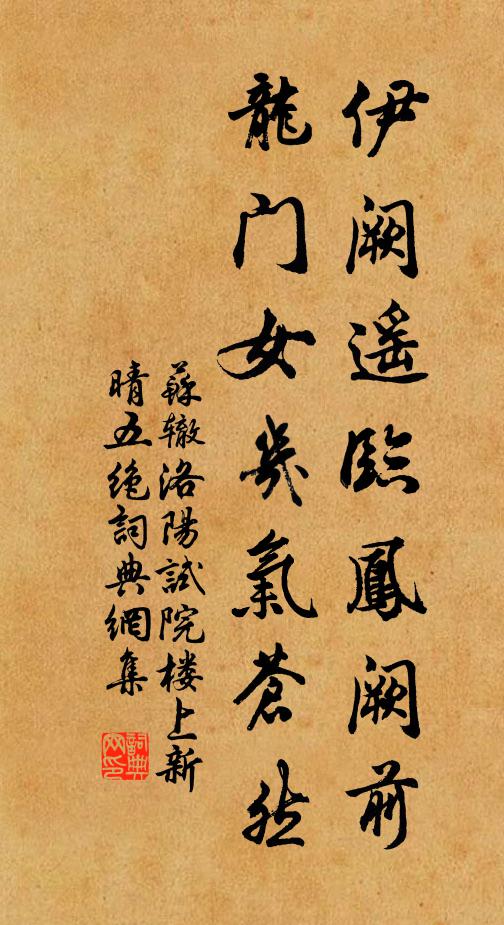 伊阙遥臨鳳阙前
龍门女幾氣蒼然
蘇辙洛陽試院楼上新
晴五绝詞典網集
詞典
网印